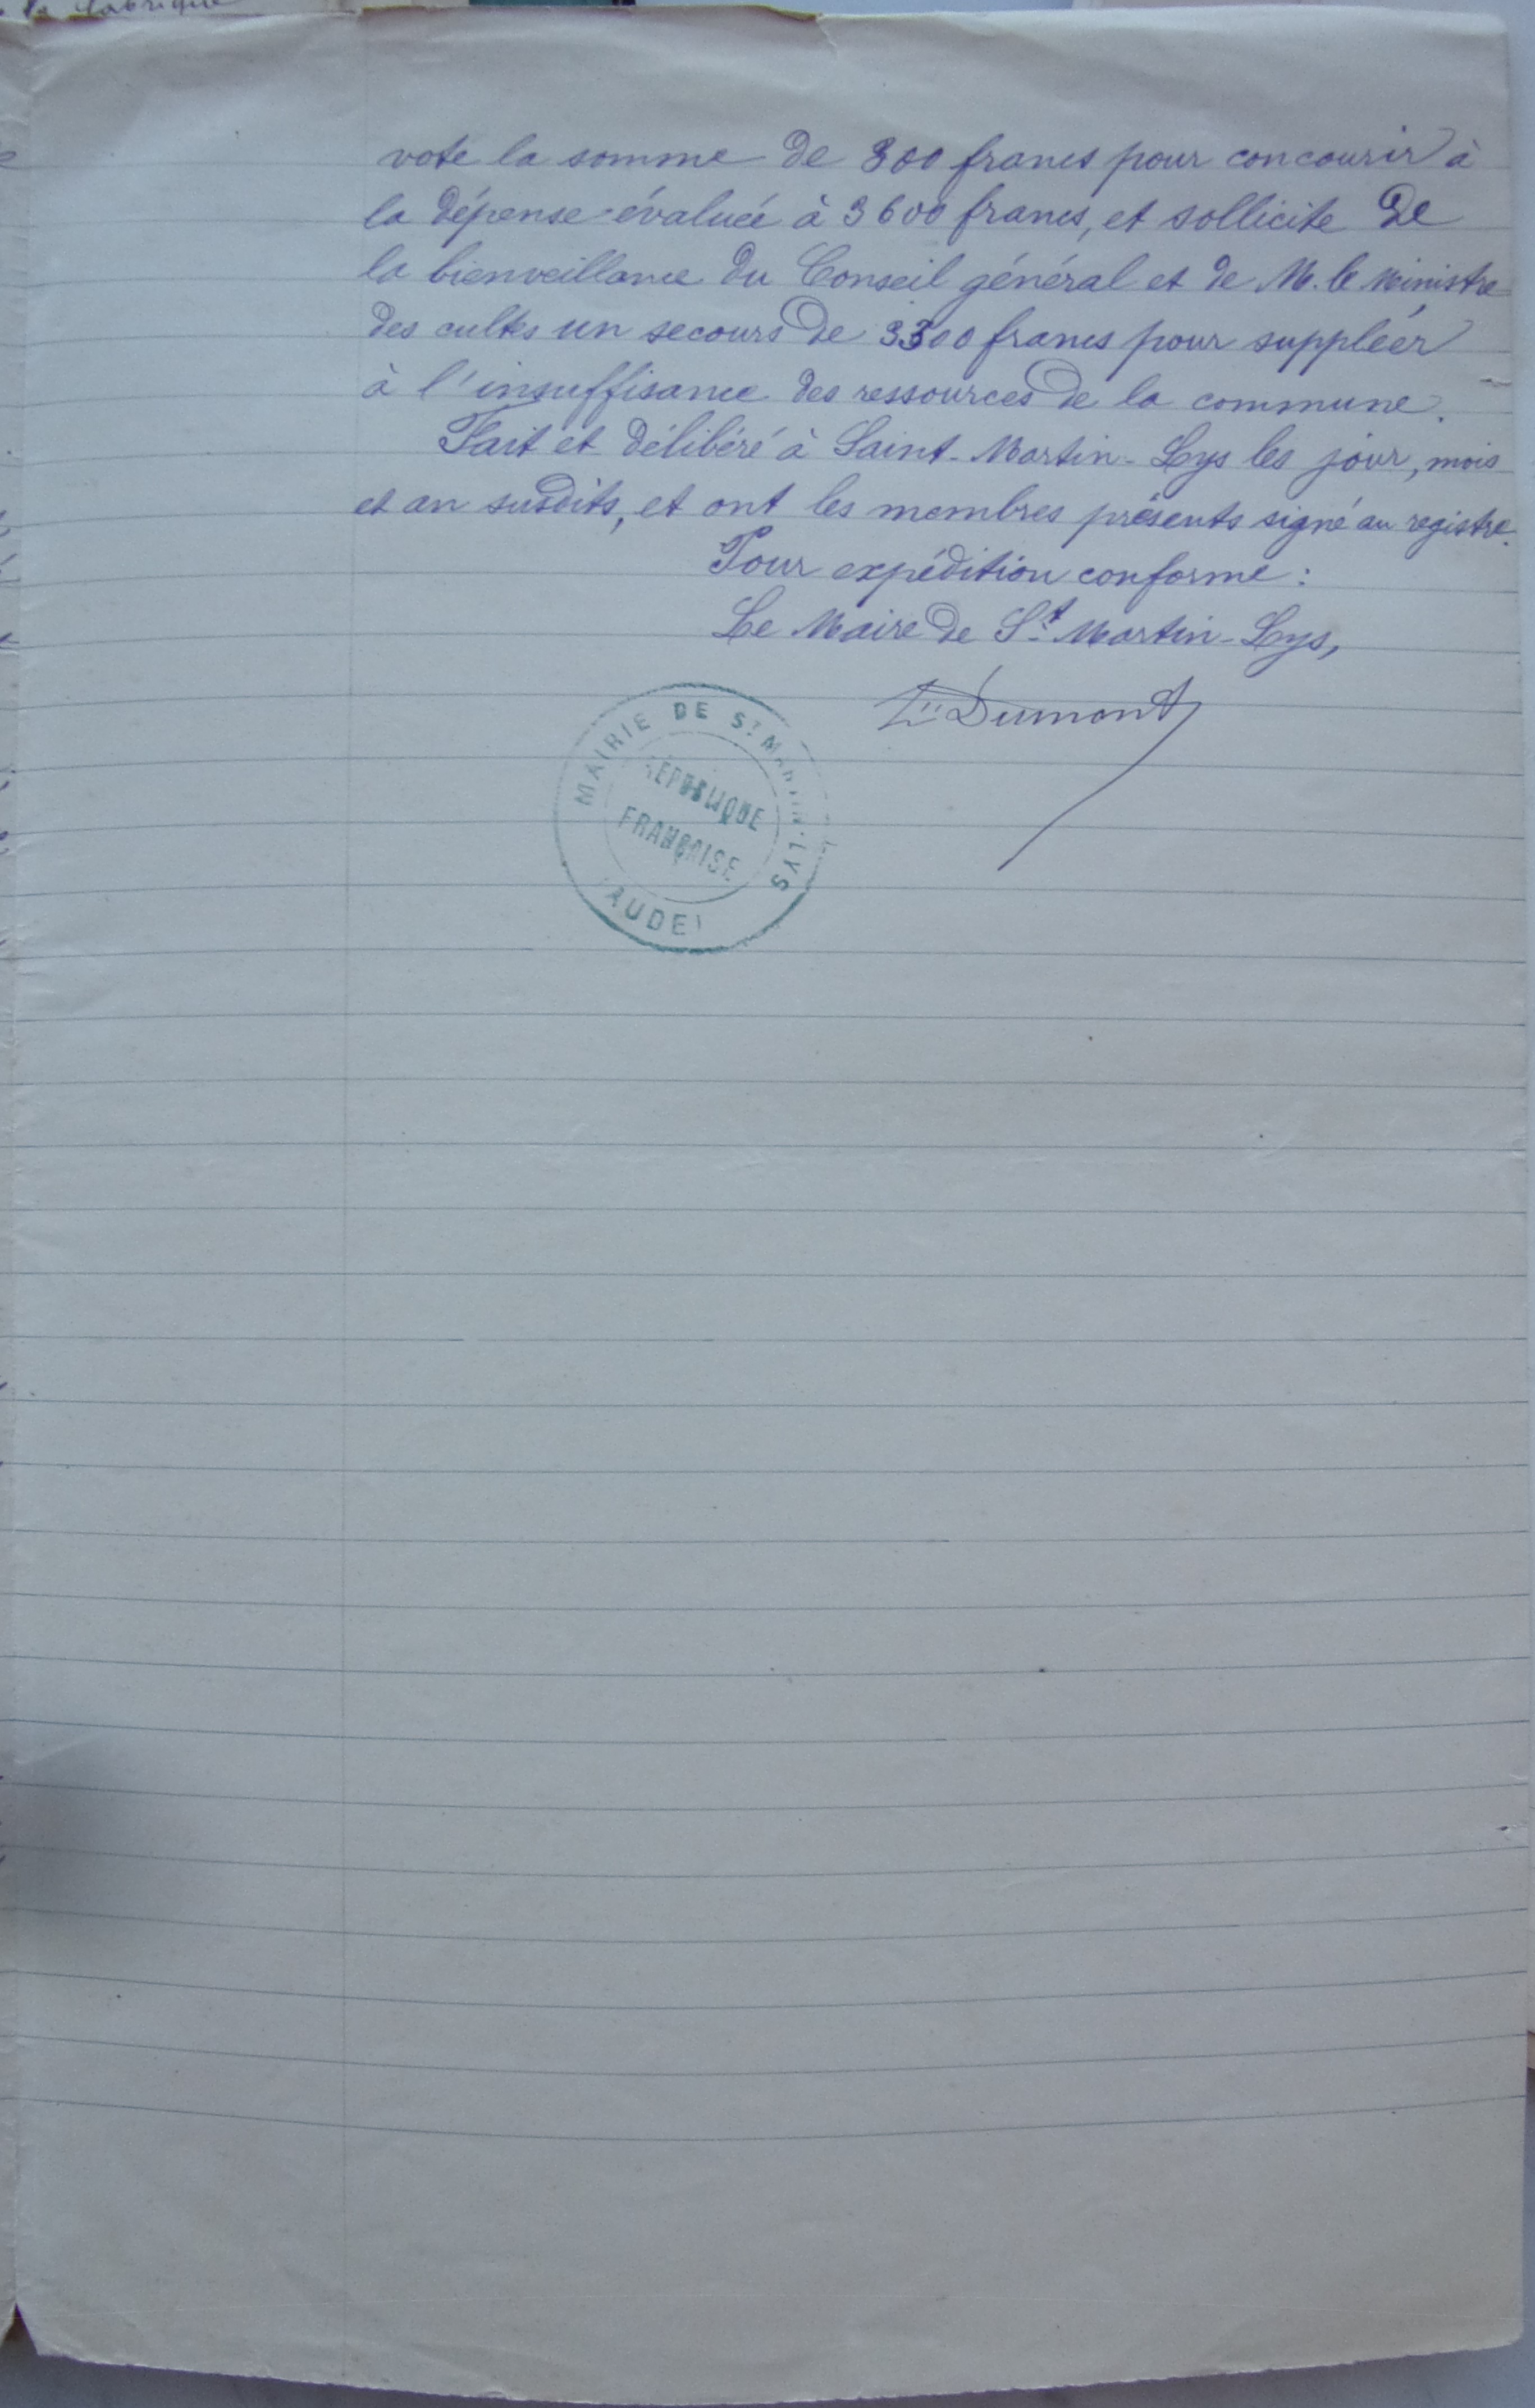 la fabrique
vote la somme de 300 francs pour concourir à
la dépense évaluée à 3600 francs, et sollicite de
la bienveillance du Conseil général et de M. le Ministre
des cultes un secours de 3300 francs pour suppléer
à l'insuffisance des ressources de la commune.
Fait et délibéré à Saint-Martin-Lys les jour, mois
et an susdits, et ont les membres présents signé au registre.
Pour expédition conforme :
Le Maire de St Martin-Lys,
Dumont
MAIRIE DE ST MARTIN-LYS
RÉPUBLIQUE
FRANÇAISE
(AUDE)